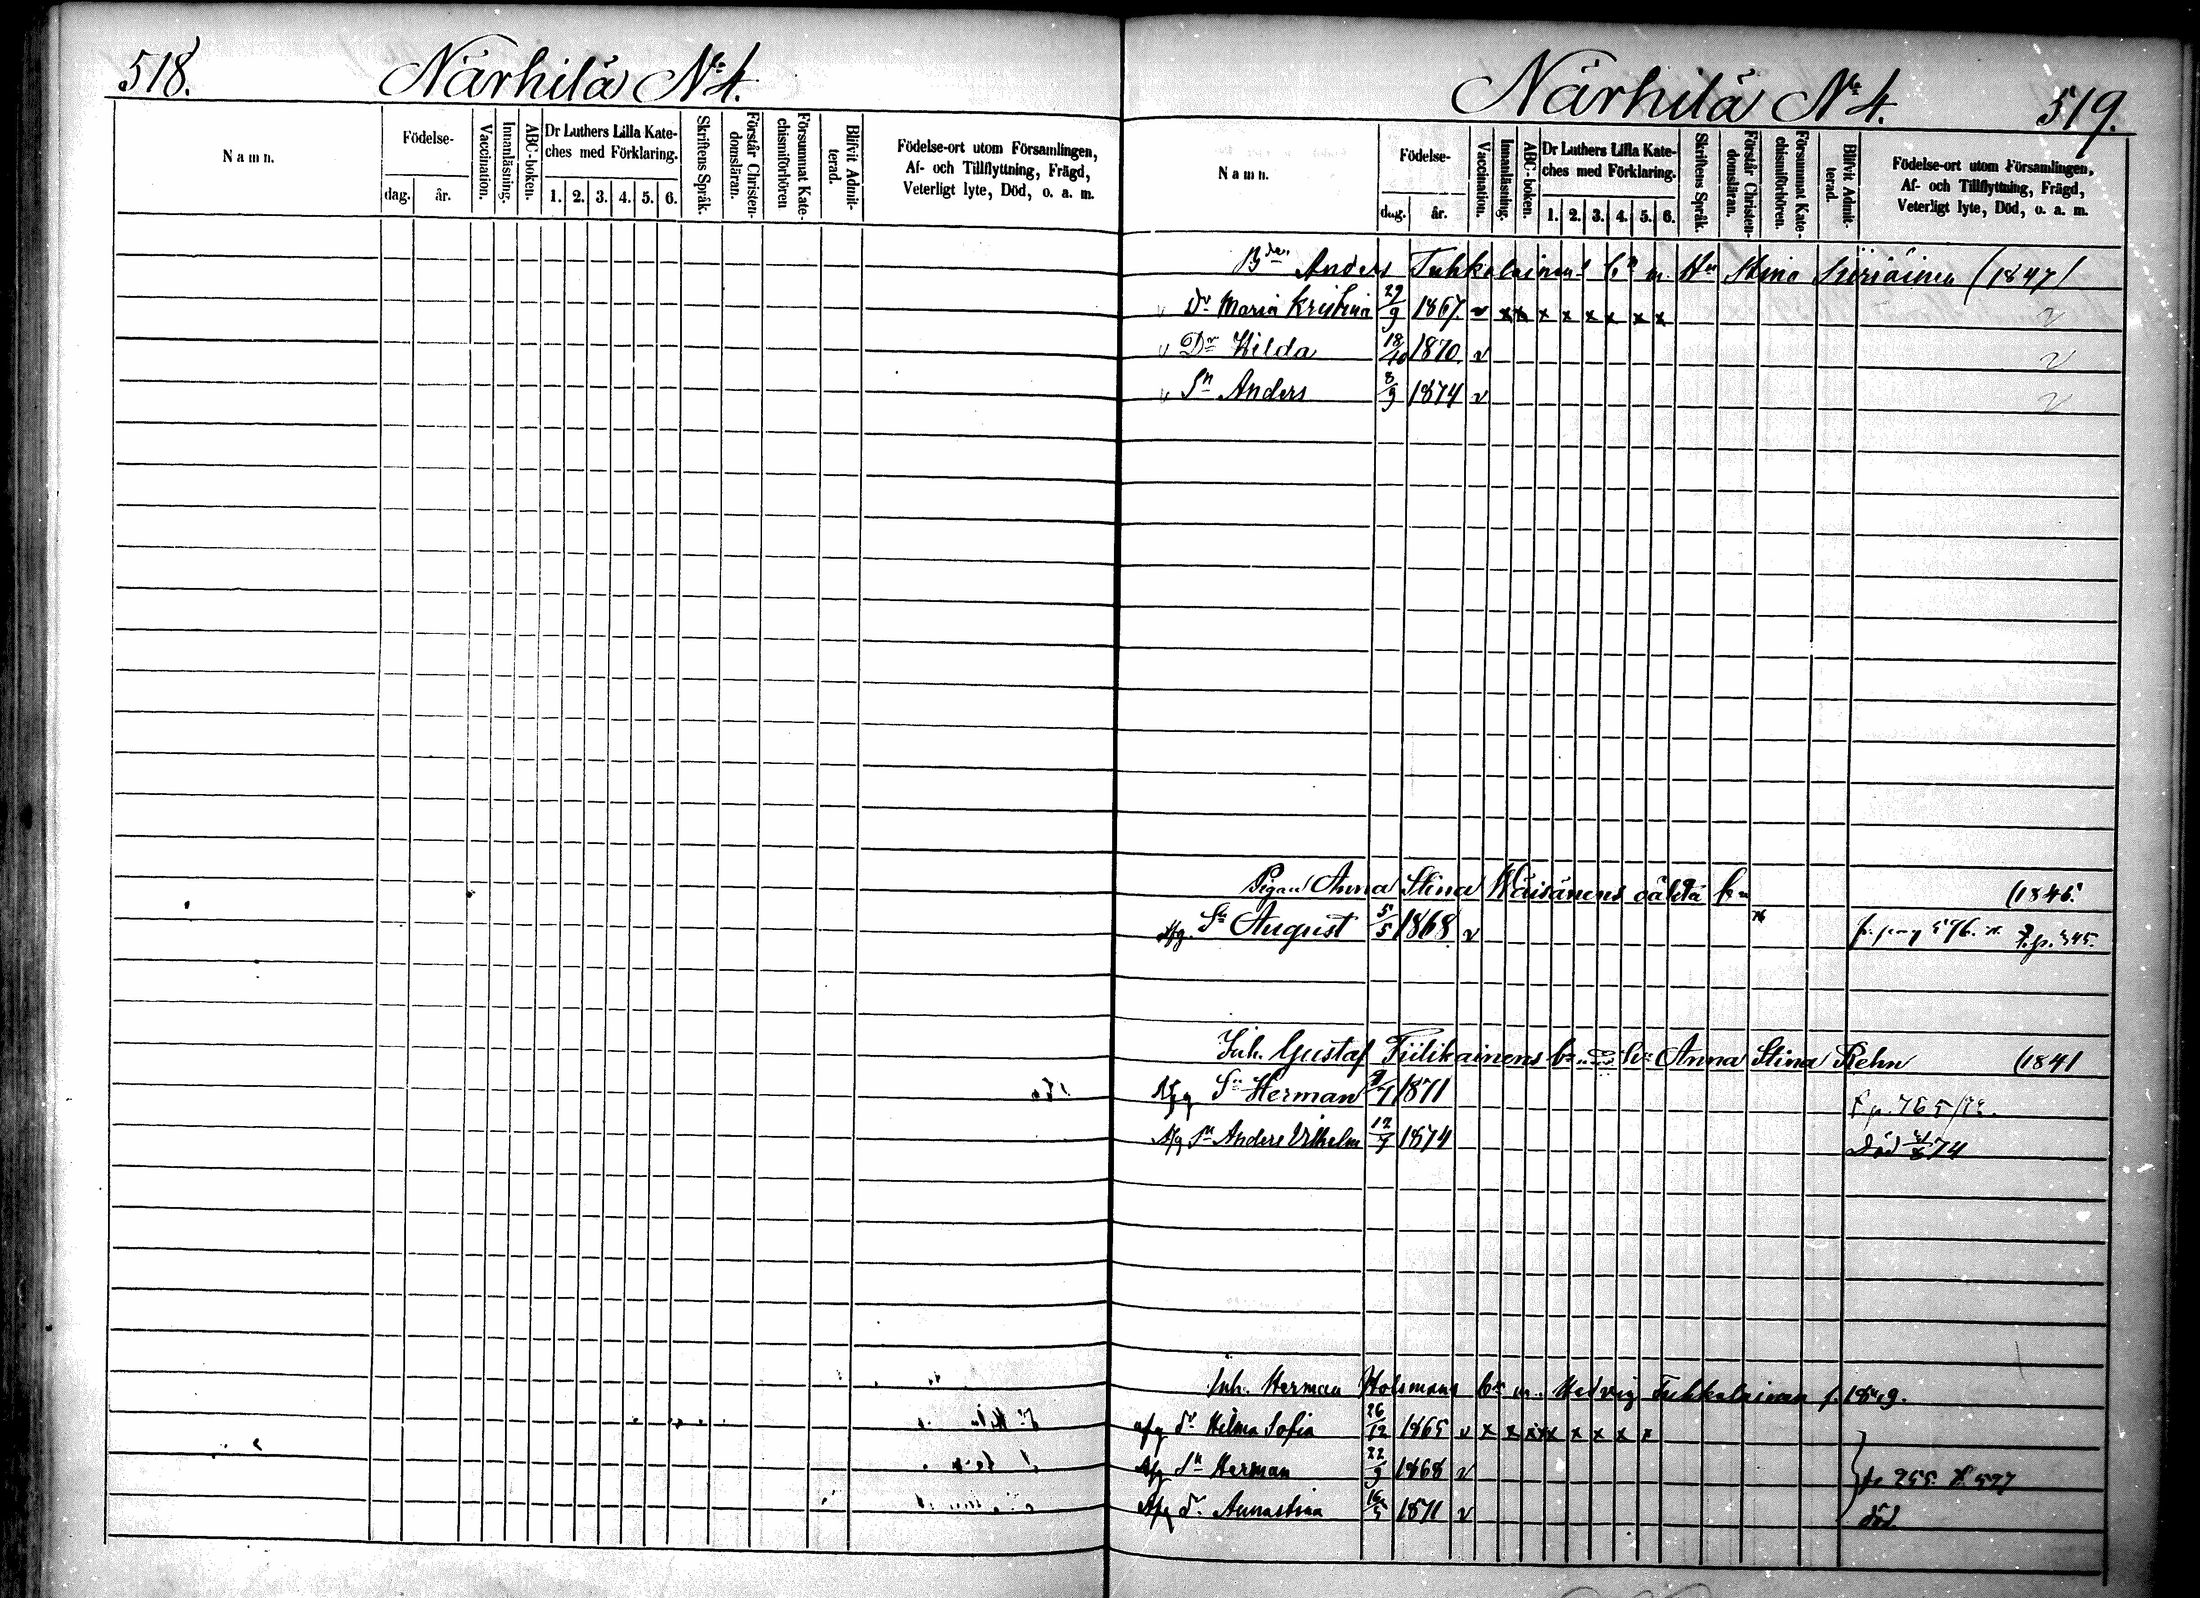 518.
Närhilä No 4.
Namn.
Födelse-
dag.
år.
Vaccination.
Innanläsning.
ABC-boken.
Dr Luthers Lilla Kate-
ches med Förklaring.
1. 2. 3. 4. 5. 6.
Skriftens Språk.
Förstår Christen-
domsläran.
Försummat Kate-
chismiförhören.
Blifvit Admit-
terad.
Födelse-ort utom Församlingen,
Af- och Tillflyttning, Frägd,
Veterligt lyte, Död, o. a. m.
Närhilä No 4.
519.
Namn.
Födelse-
dag.
år.
Vaccination.
Innanläsning.
ABC-boken.
Dr Luthers Lilla Kate-
ches med Förklaring.
1. 2. 3. 4. 5. 6.
Skriftens Språk.
Förstår Christen-
domsläran.
Försummat Kate-
chismiförhören.
Blifvit Admit-
terad.
Födelse-ort utom Församlingen,
Af- och Tillflyttning, Frägd,
Veterligt lyte, Död, o. a. m.
Anders Tuhkalainens bn m. Hu Stina (1847)
v Dr Maria Kristina 29/9 1867 v x x x x x x x x v
v Dr Hilda 18/10 1870 v v
v Sn Anders 8/9 1874 v v
Pigan Anna Stina Wäisänens oäkta bn (1846
Afg. Sn August 5/5 1868 v
Inh. Gustaf Fiilikainens bn Anna Stina Rehn (1841
Afg Sn Herman 1871 p. 765/72.
Afg Sn Anders Vilhelm 12/7 1874 Död 74
Inh. Herman Holsmans bn m. Hedvig Tuhkalainen
afg Dr Hilma Sofia 26/12 1865 v x x x x x x x x
Afg Sn Herman 22/9 1868 v
Afg Dr Annastina 1871 v död.